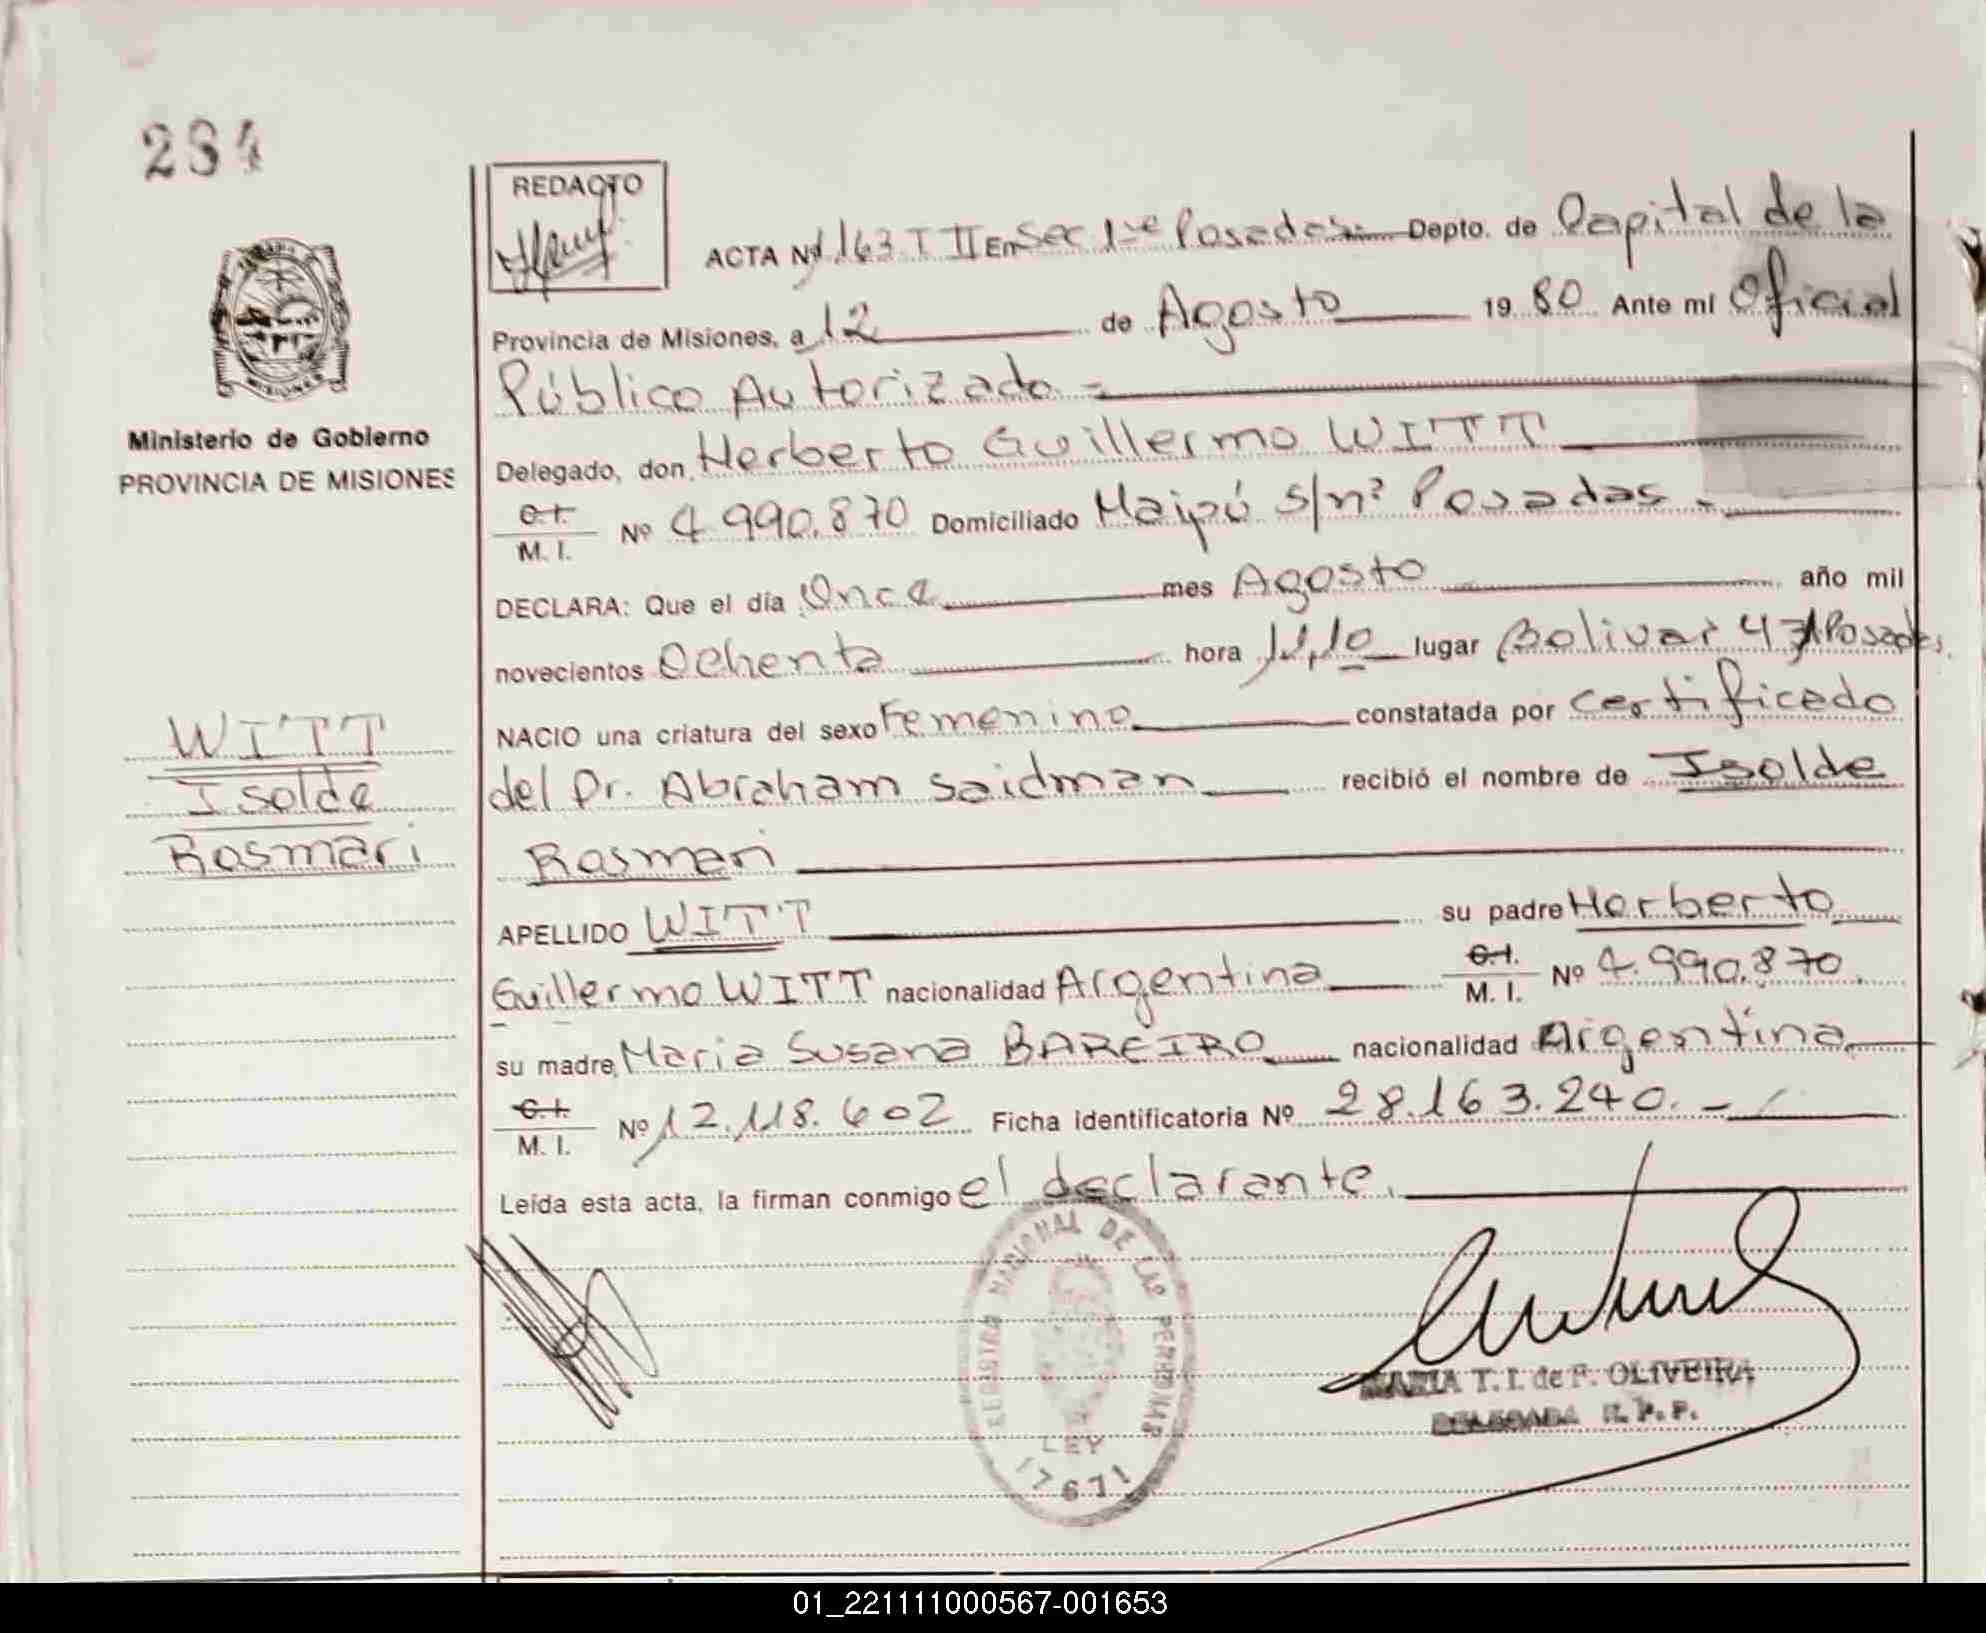 284
REDACTO
ACTA Nº 163 T II En Sec 1ra Posadas Depto. de Capital de la
Provincia de Misiones, a 12 de Agosto 19 80 Ante mi Oficial
Público Autorizado.=
Ministerio de Gobierno
PROVINCIA DE MISIONES
Delegado, don Herberto Guillermo WITT
C.I. M. I. Nº 4.990.870 Domiciliado Maipú s/nº Posadas.-
DECLARA: Que el día Once mes Agosto año mil
novecientos Ochenta hora 11,10 lugar Bolivar Posadas.
NACIO una criatura del sexo Femenino constatada por certificado
del Dr. Abraham Saidman recibió el nombre de Isolde
Rosmari
WITT
Isolde
Rosmari
APELLIDO WITT su padre Herberto
Guillermo WITT nacionalidad Argentina C.I. M. I. Nº 4.990.870.
su madre Maria Susana BAREIRO nacionalidad Argentina.
C.I. M. I. Nº 12.118.602 Ficha identificatoria Nº 28.163.240.-
Leída esta acta, la firman conmigo el declarante.
REGISTRO NACIONAL DE LAS PERSONAS
LEY
17671
MARIA T. I. de F. OLIVEIRA
DELEGADA R. P. P.
01_221111000567-001653